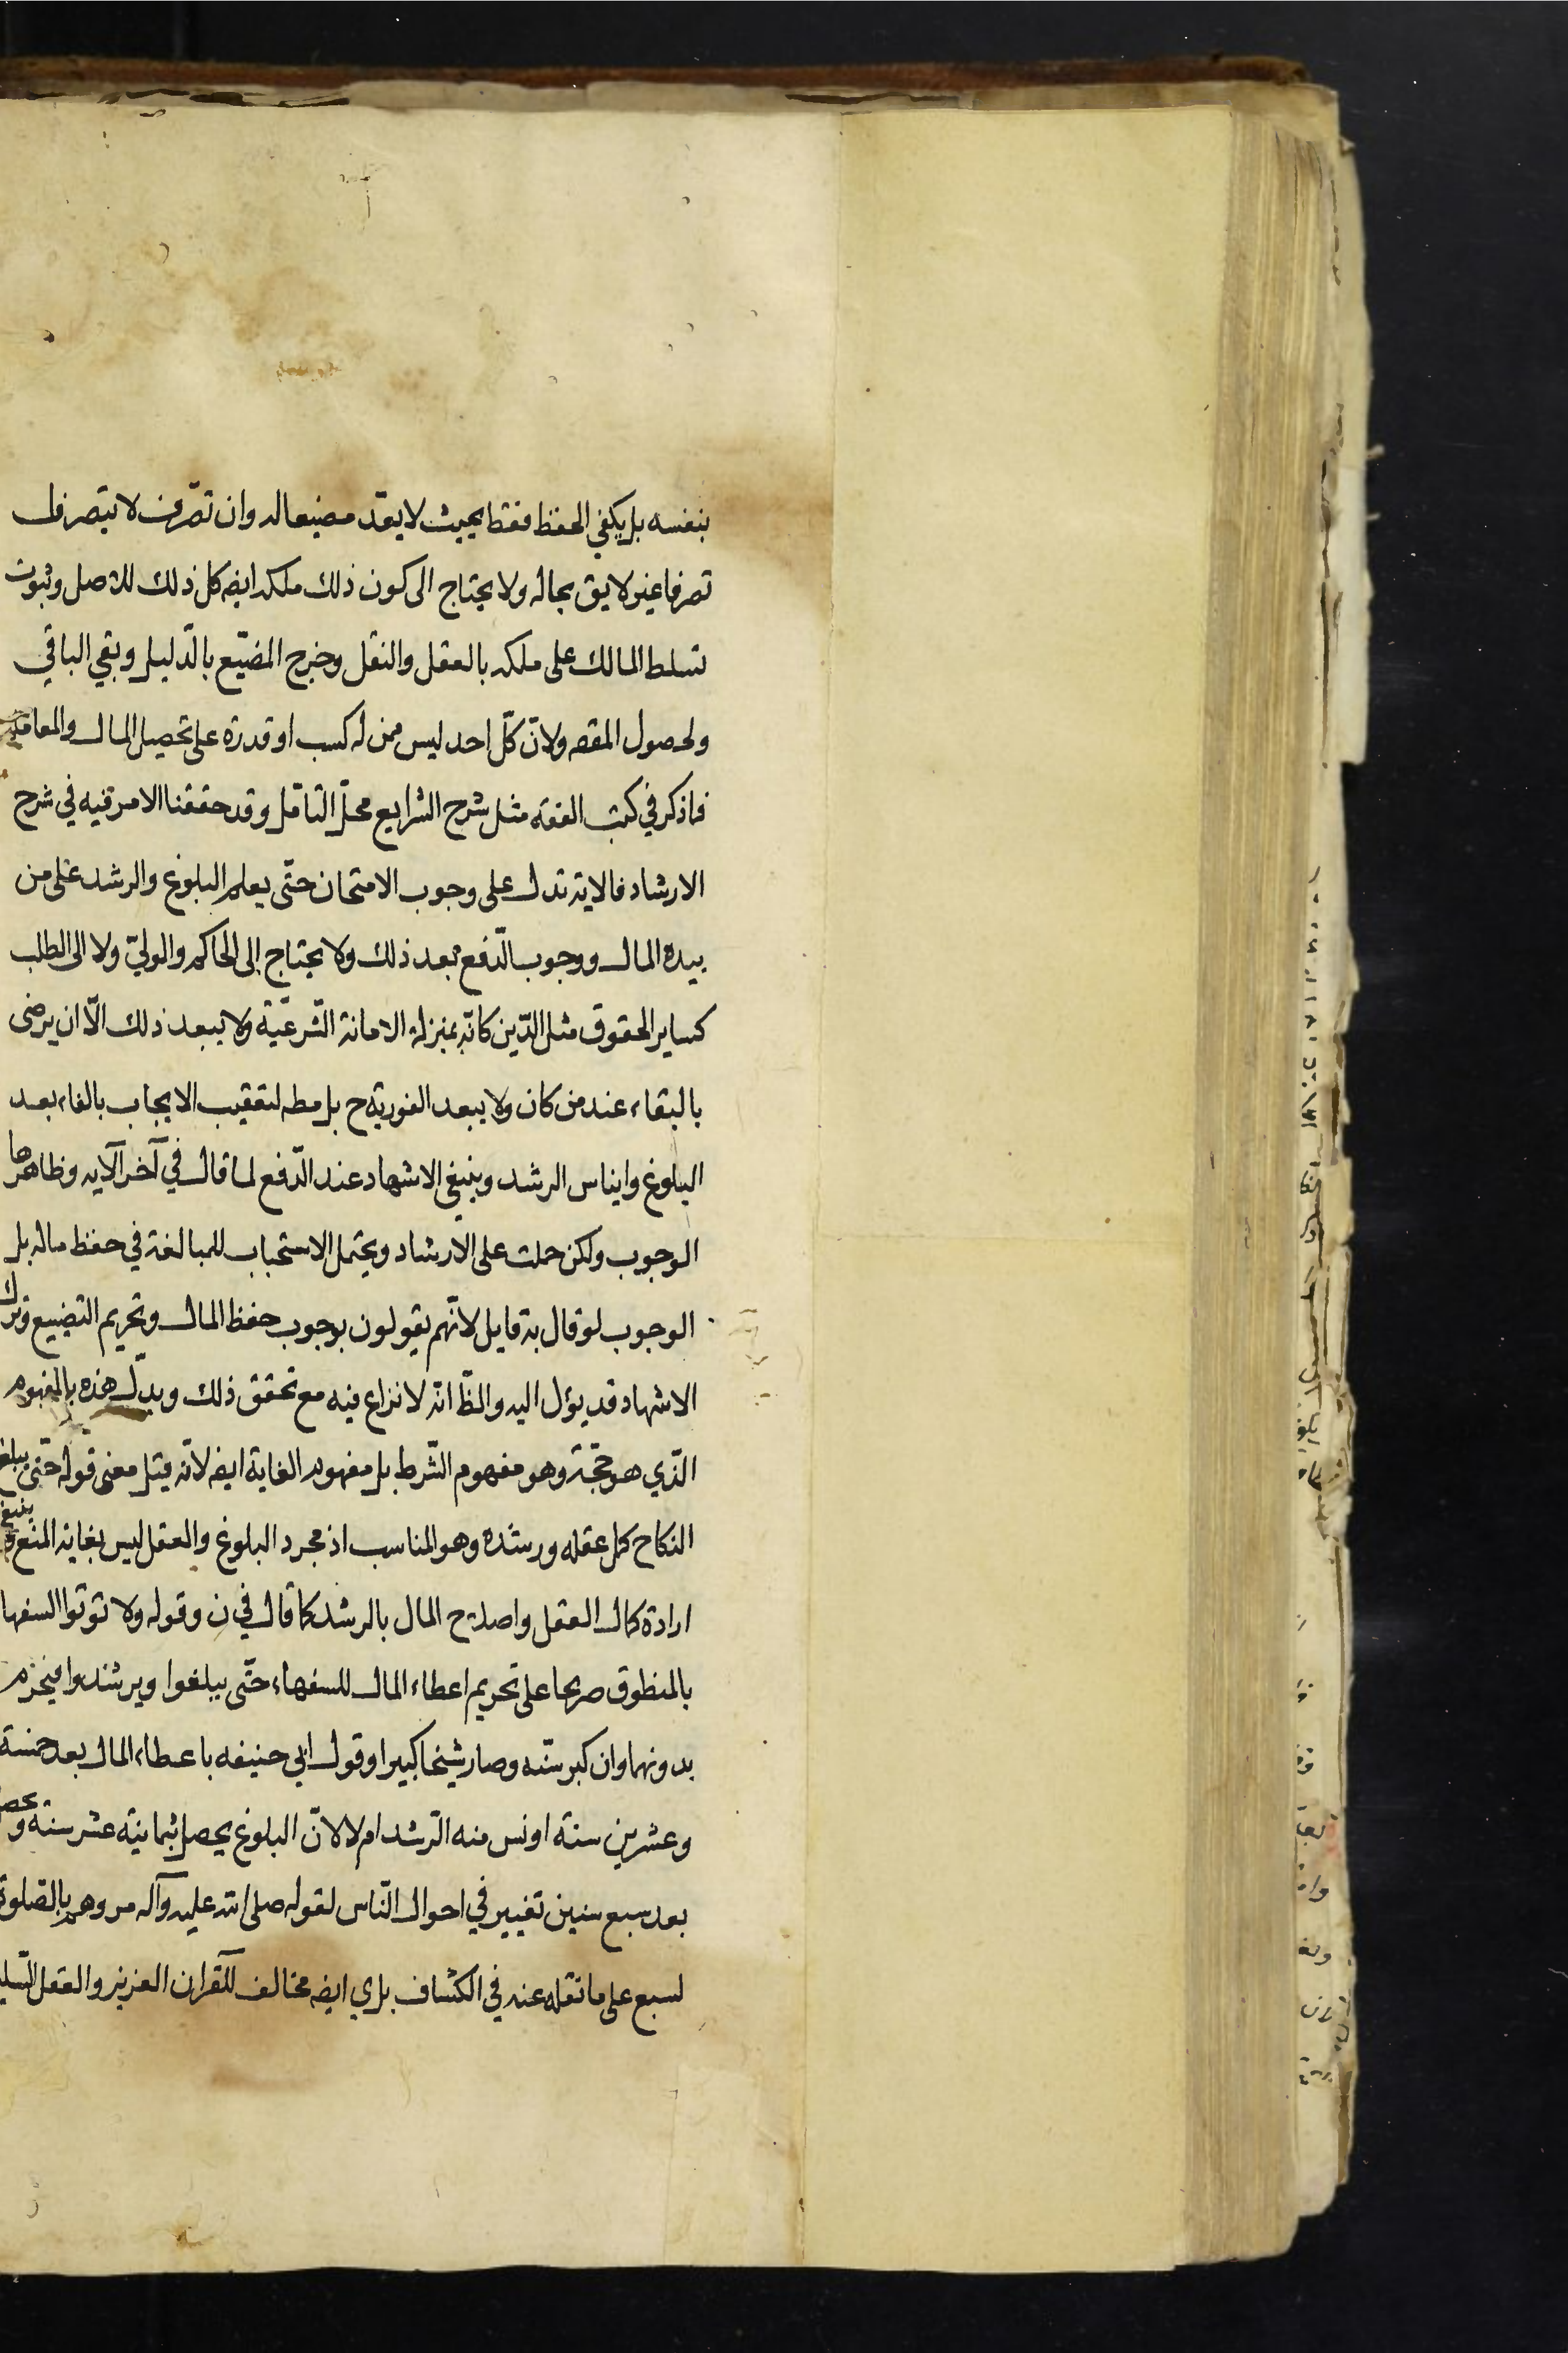 بنفسه بل يكفي الحفظ فقط بحيث لا يعدّ مضيعا له وان تصّرف لا يتصرف
تصرفا غير لايق بحاله ولا يحتاج الى كون ذلك ملكه ايضه كل ذلك للاصل وثبوت
تسلط المالك على ملكه بالعقل والنقل وخرج المضيّع بالدّليل وبقي الباقي
ولحصول المقصه ولانّ كلّ احد ليس ممن له كسب او قدرة على تحصيل المال والمعاملة
فما ذكر في كتب الفقه مثل شرح الشرايع محلّ التامّل وقد حققنا الامر فيه في شرح
الارشاد فالاية تدل على وجوب الامتحان حتّى يعلم البلوغ والرشد على من
بيده المال ووجوب الدّفع بعد ذلك ولا يحتاج إلى الحاكم والوليّ ولا الى الطلب
كساير الحقوق مثل الدّين كانّه بمنزلة الامانة الشّرعيّة ولا يبعد ذلك الّا ان يرضى
بالبقاء عند من كان ولا يبعد الفورية ح بل مطه لتعقيب الايجاب بالفاء بعد
البلوغ وايناس الرشد وينبغي الاشهاد عند الدّفع لما قال في آخر الآيه وظاهرها
الوجوب ولكن حملت على الارشاد ويحتمل الاستحباب للمبالغة في حفظ ماله بل
الوجوب لو قال به قايل لانّهم يقولون بوجوب حفظ المال وتحريم التضييع وترك
الاشهاد قد يؤل اليه والظّ انّه لا نزاع فيه مع تحقق ذلك ويدلّ هذه بالمفهوم
الّذي هو حجّة وهو مفهوم الشّرط بل مفهوم الغاية ايضه لانّه قيل معنى قوله حتّى يبلغ
النكاح كمل عقله ورشده وهو المناسب اذ مجرد البلوغ والعقل ليس بغاية المنع وينبغي
ارادة كمال العقل واصلاح المال بالرشد كما قال في ن وقوله ولا تؤتوا السفها
بالمنطوق صريحا على تحريم اعطاء المال للسفهاء حتّى يبلغوا ويرشدوا فيحرم
بدونهما وان كبر سنّه وصار شيخا كبيرا وقول ابي حنيفه باعطاء المال بعد خمسة
وعشرين سنة اونس منه الرّشد ام لا لانّ البلوغ يحصل بثمانية عشر سنة و يحصل
بعد سبع سنين تغيير في احوال النّاس لقوله صلى الله عليه وآله مروهم بالصّلوة
لسبع على ما نقله عنه في الكشاف براي ايضه مخالف للقرآن العزيز والعقل السّليم